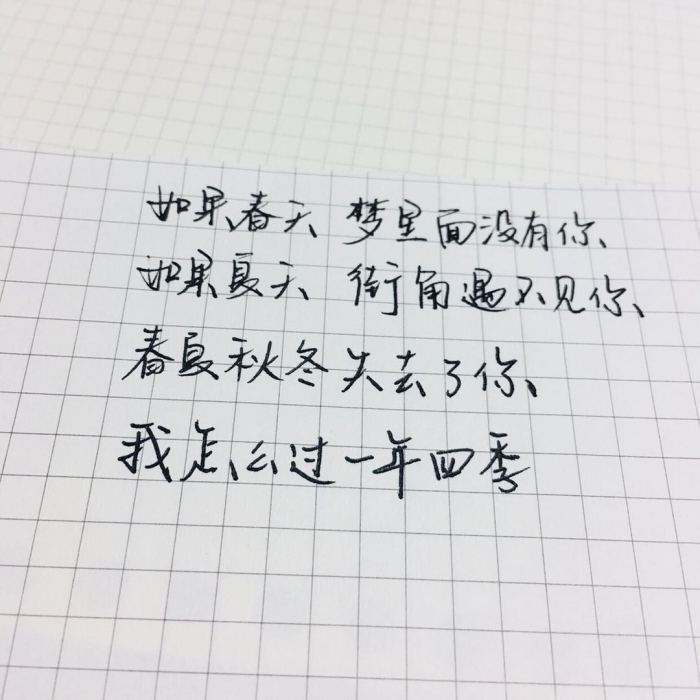 如果春天 梦里面没有你、
如果夏天 街角遇不见你、
春夏秋冬失去了你、
我怎么过一年四季